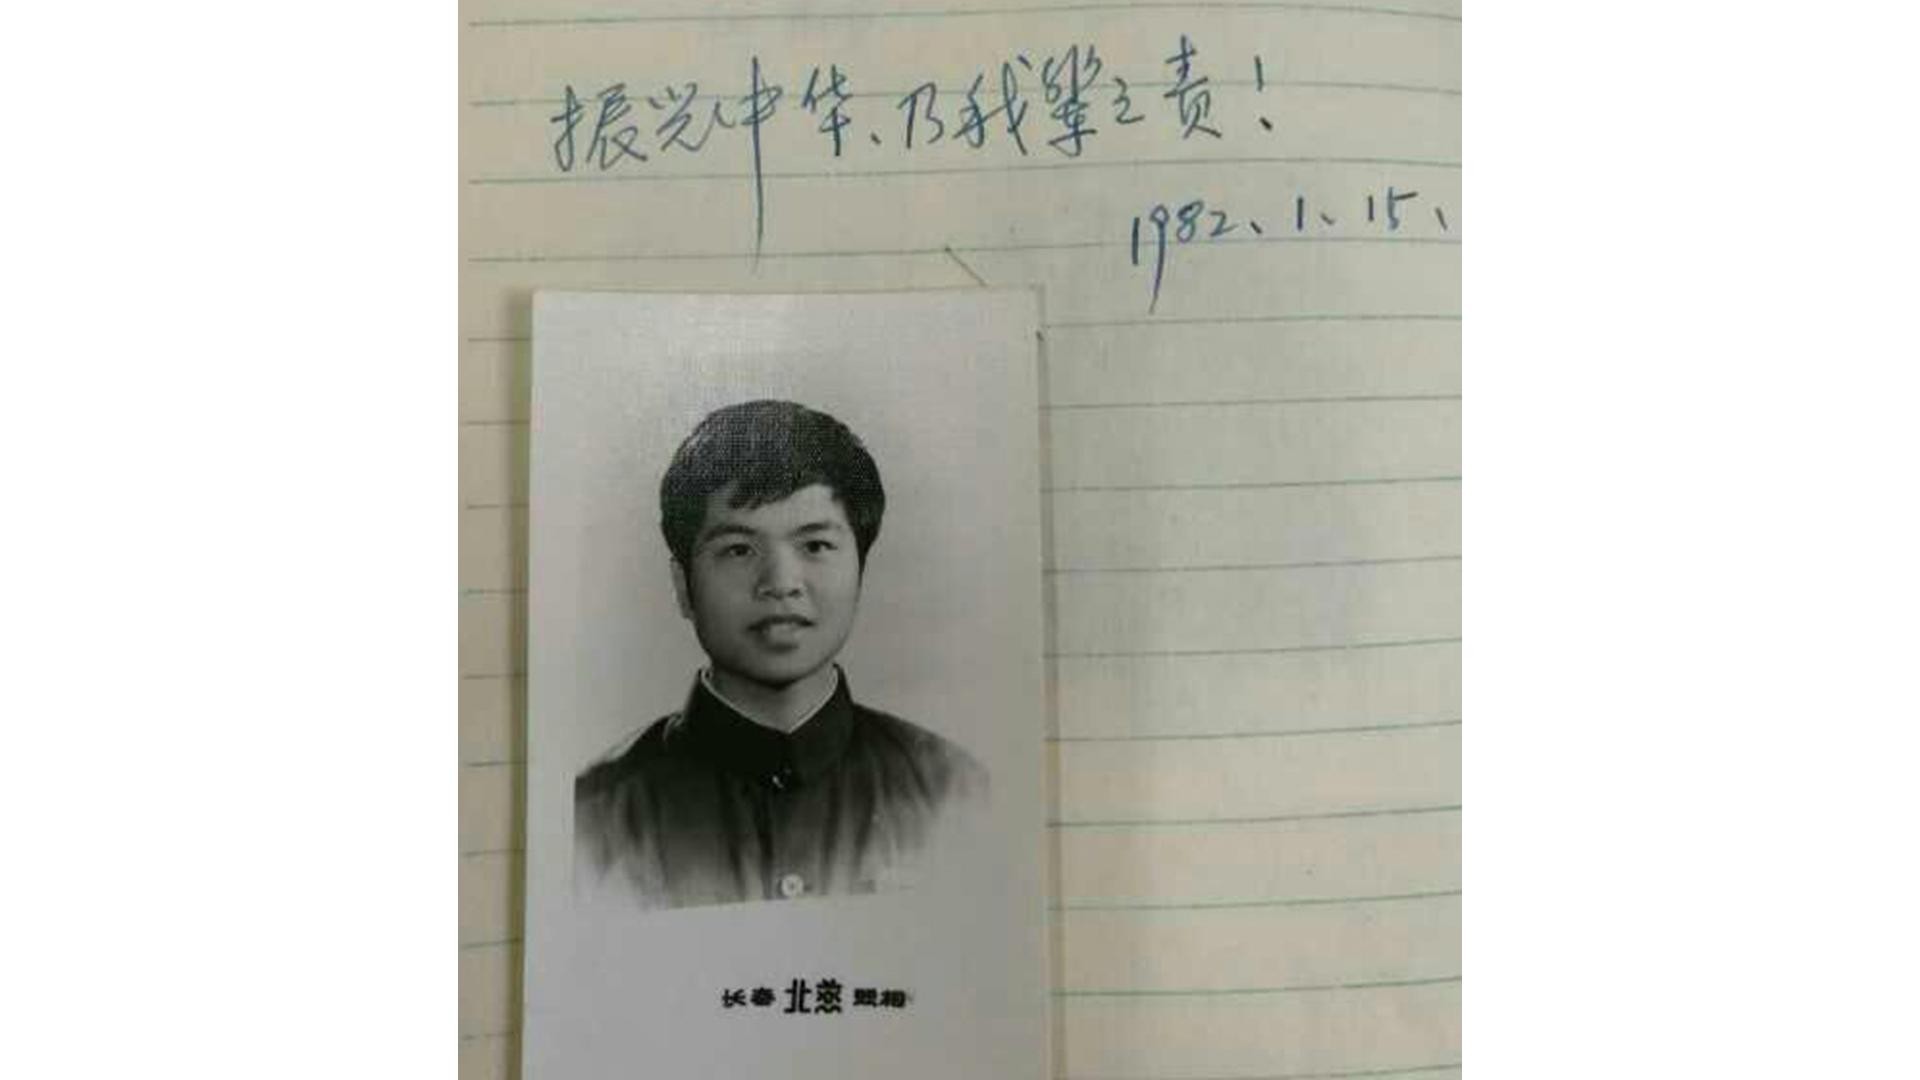 振兴中华、乃我辈之责!
1982、1、15、
长春 北燚 照相